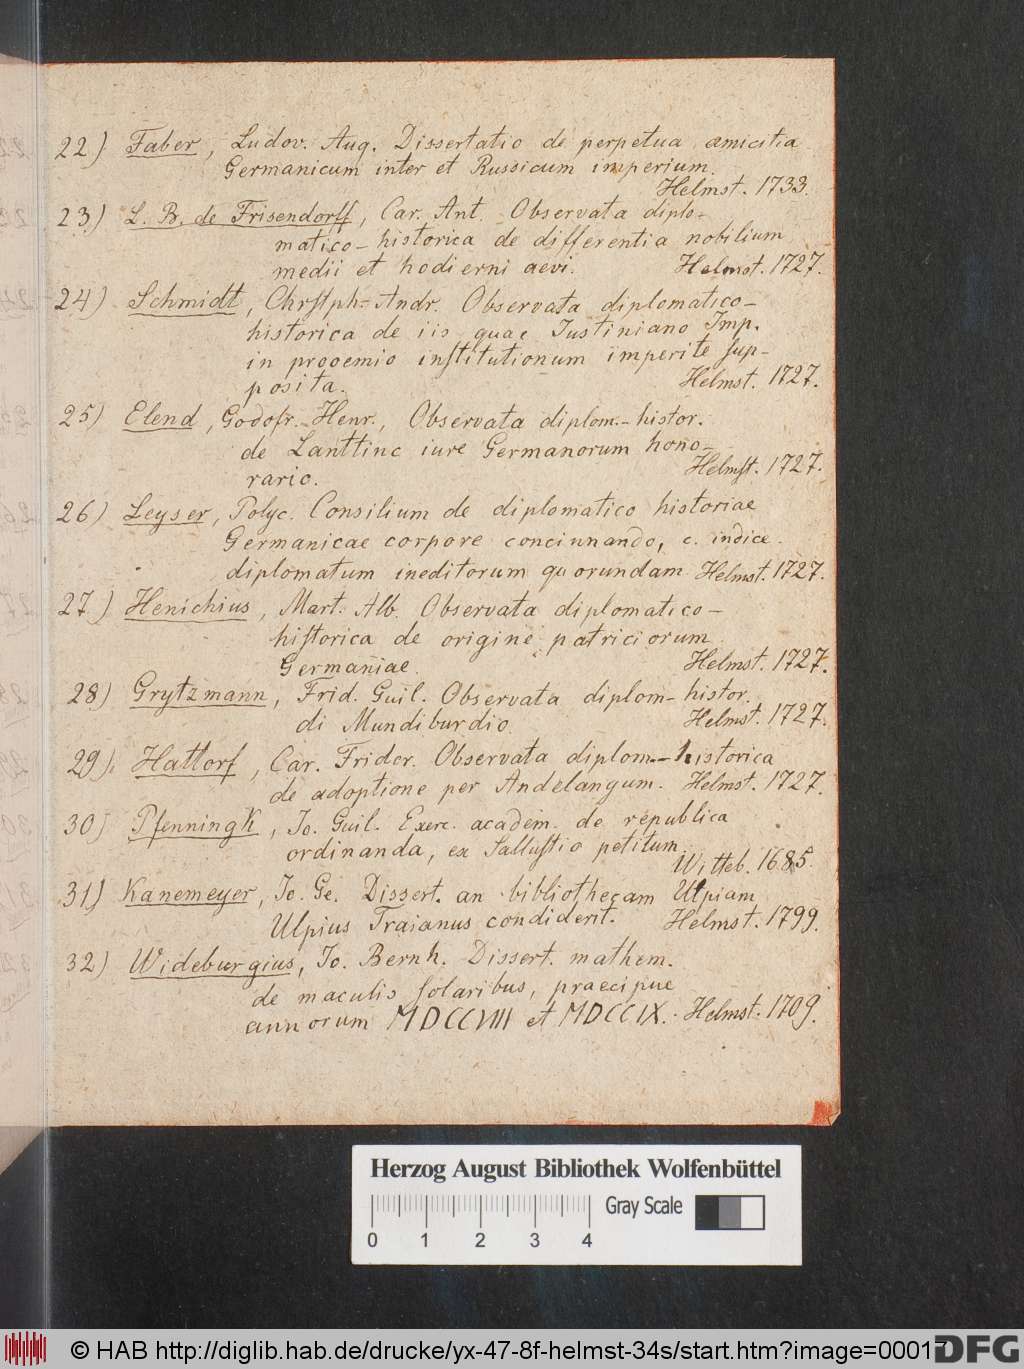 22) Faber, Ludov. Aug. Dissertatio de perpetua amicitia
Germanicum inter et Russicum imperium.
Helmst. 1733.
23) L. B. de Frisendorff, Car. Ant. Observata diplo-
matico-historica de differentia nobilium
medii et hodierni aevi. Helmst. 1727.
24) Schmidt, Chrſtph-Andr. Observata diplomatico-
historica de iis quae Justiniano Imp.
in prooemio inſtitutionum imperite ſup-
posita. Helmst. 1727.
25) Elend, Godofr. Henr., Observata diplom.-histor.
de Lanttinc iure Germanorum hono-
rario. Helmſt. 1727.
26) Leyser, Polyc. Consilium de diplomatico historiae
Germanicae corpore concinnando, c. indice
diplomatum ineditorum quorundam Helmst. 1727.
27) Henichius, Mart. Alb. Observata diplomatico-
hiſtorica de origine patriciorum
Germaniae. Helmst. 1727.
28) Grytzmann, Frid. Guil. Observata diplom-histor.
di Mundiburdio. Helmst. 1727.
29) Hattorf, Car. Frider. Observata diplom.-historica
de adoptione per Andelangum. Helmst. 1727.
30) Pfenningk, Jo. Guil. Exerc. academ. de republica
ordinanda, ex Salluſtio petitum.
Witteb. 1685.
31) Kanemeyer, Jo. Ge. Dissert. an bibliothecam Ulpiam
Ulpius Traianus condiderit. Helmst. 1799.
32) Wideburgius, Jo. Bernh. Dissert. mathem.
de maculis ſolaribus, praecipue
annorum MDCCVIII et MDCCIX. Helmst. 1709.
Herzog August Bibliothek Wolfenbüttel
Gray Scale
0 1 2 3 4
© HAB http://diglib.hab.de/drucke/yx-47-8f-helmst-34s/start.htm?image=00017
DFG